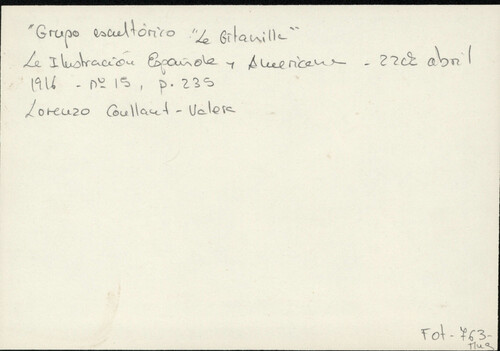 "Grupo escultórico "La Gitanilla"
La Ilustración Española y Americana - 22 de abril
1916 - nº 15, p. 235
Lorenzo Coullaut-Valera
Fot-763-